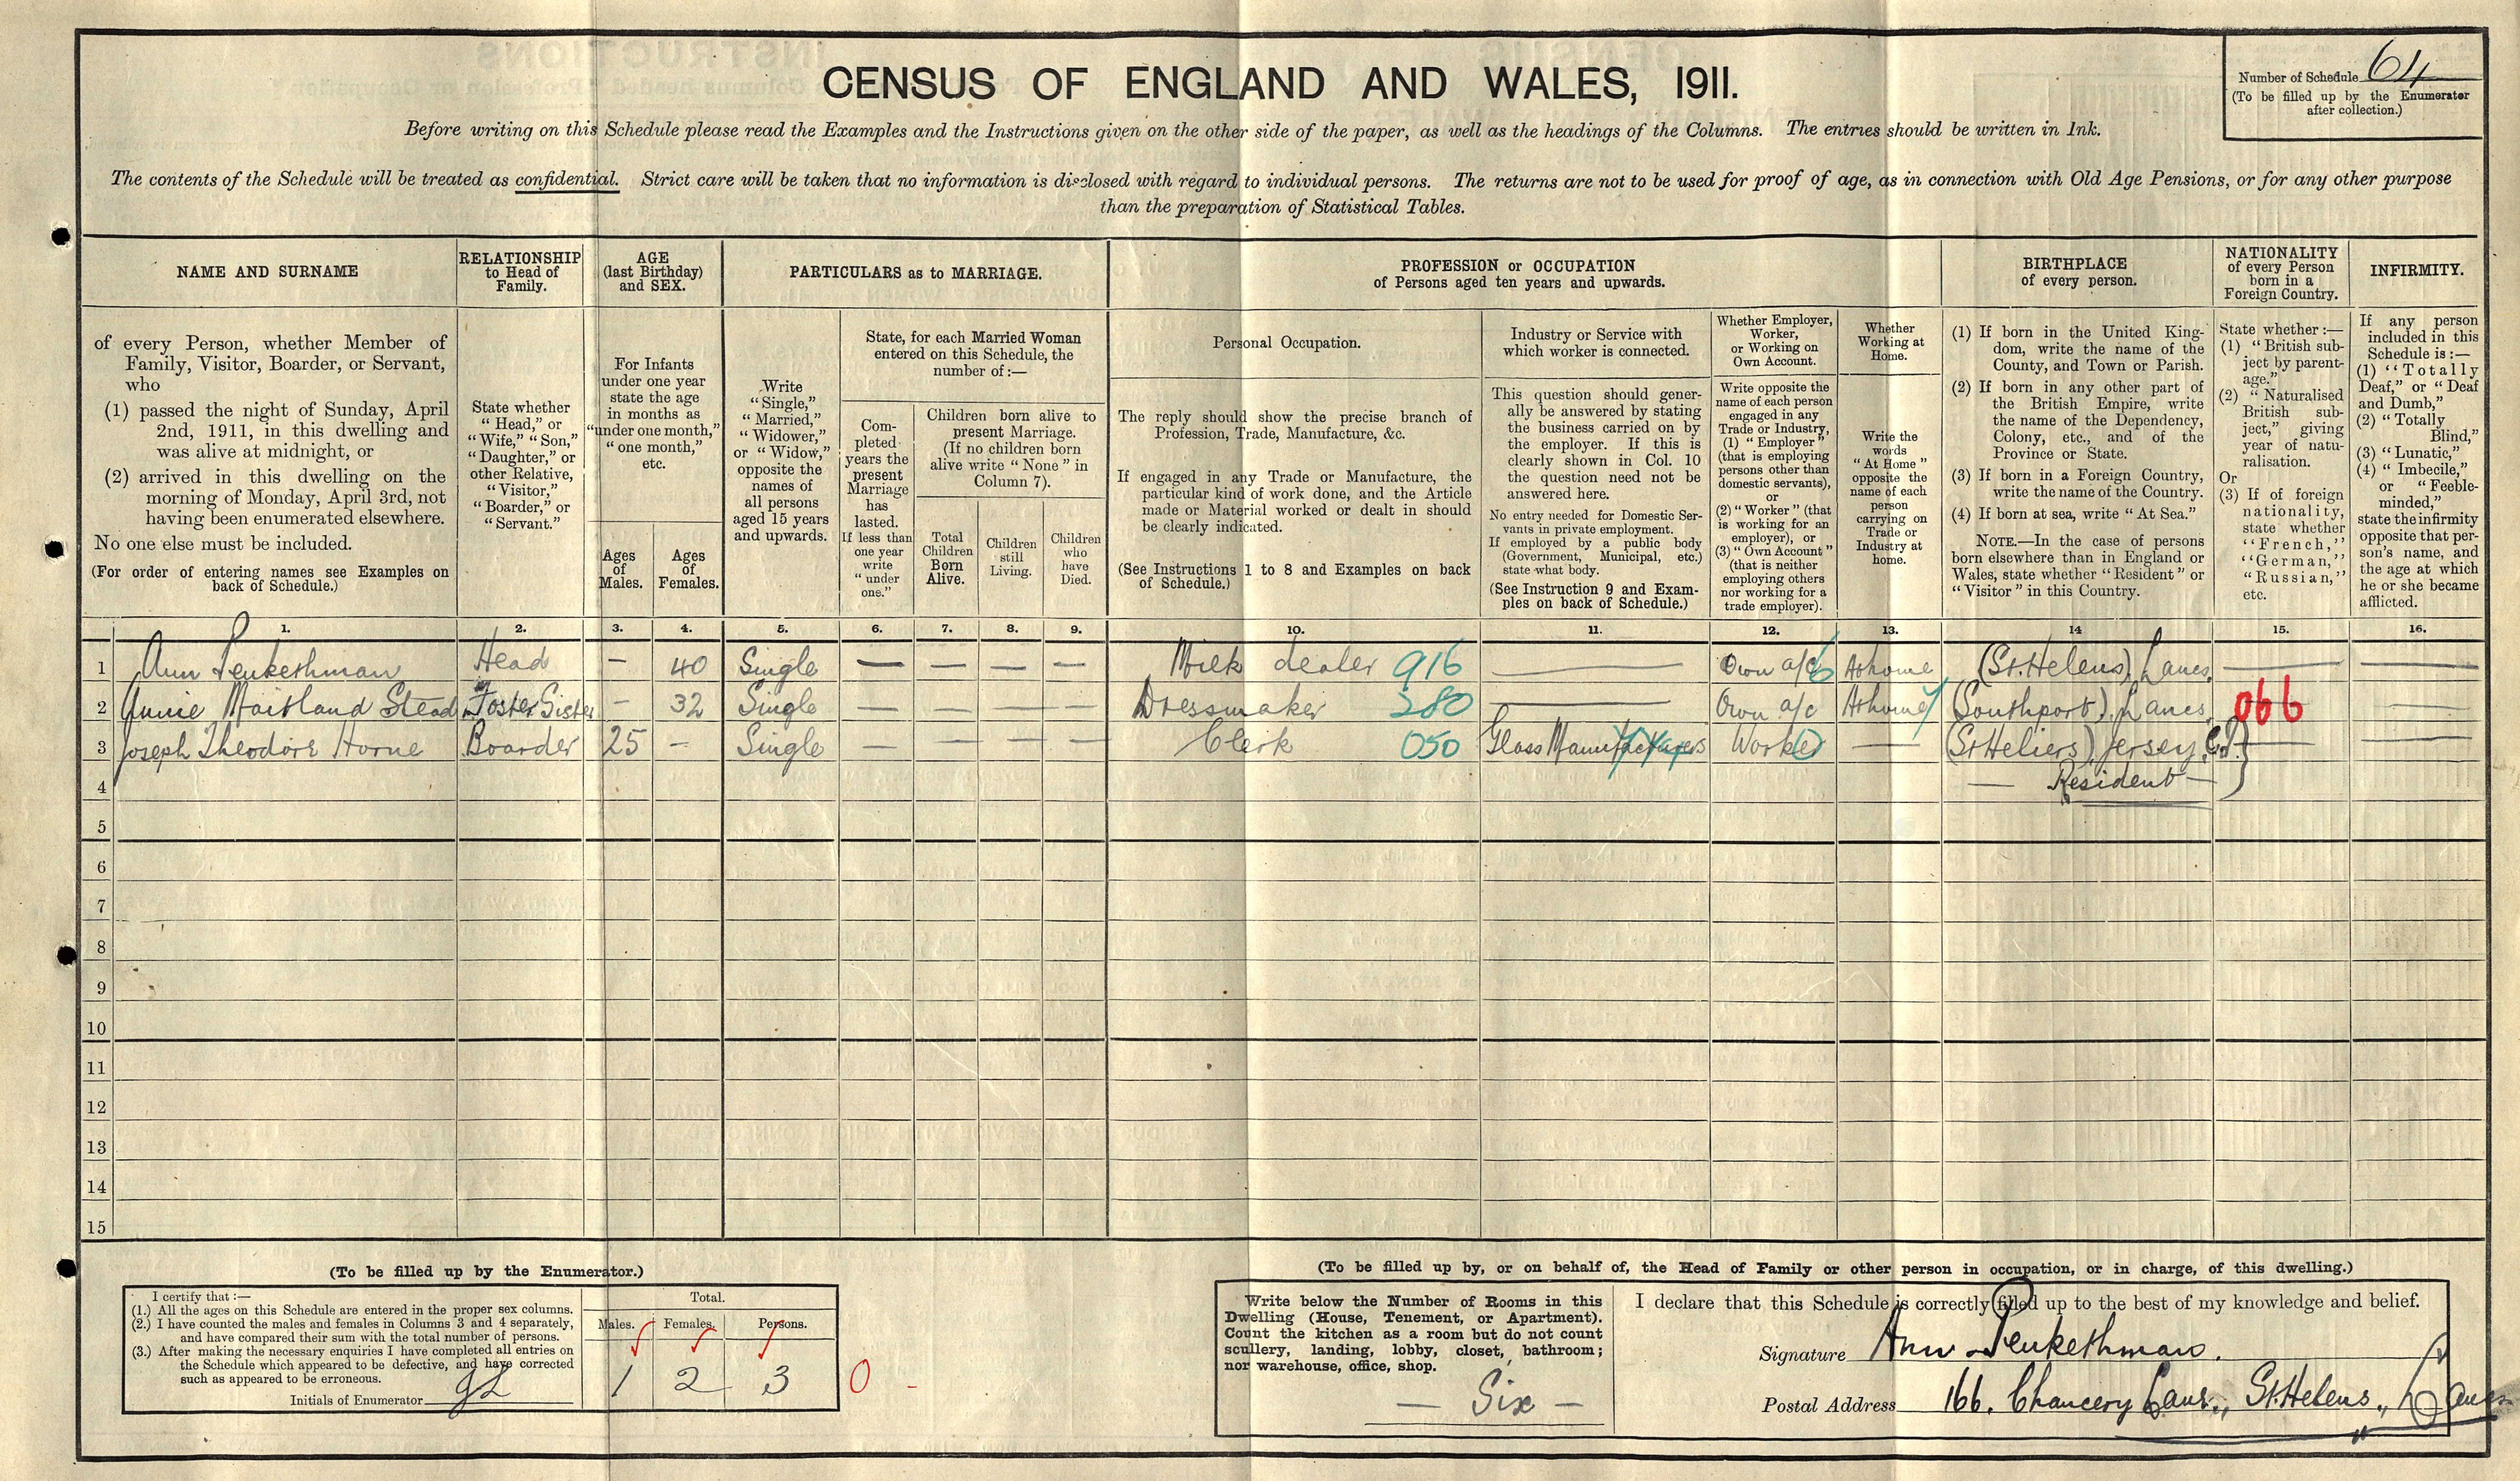 CENSUS OF ENGLAND AND WALES, 1911.
Number of Schedule 64
(To be filled up by the Enumerator
after collection.)
Before writing on this Schedule please read the Examples and the Instructions given on the other side of the paper, as well as the headings of the Columns. The entries should be written in Ink.
The contents of the Schedule will be treated as confidential. Strict care will be taken that no information is disclosed with regard to individual persons. The returns are not to be used for proof of age, as in connection with Old Age Pensions, or for any other purpose
than the preparation of Statistical Tables.
NAME AND SURNAME
of every Person, whether Member of
Family, Visitor, Boarder, or Servant,
who
(1) passed the night of Sunday, April
2nd, 1911, in this dwelling and
was alive at midnight, or
(2) arrived in this dwelling on the
morning of Monday, April 3rd, not
having been enumerated elsewhere.
No one else must be included.
(For order of entering names see Examples on
back of Schedule.)
RELATIONSHIP
to Head of
Family.
State whether
"Head," or
"Wife," "Son,"
"Daughter," or
other Relative,
"Visitor,"
"Boarder," or
"Servant."
AGE
(last Birthday)
and SEX.
For Infants
under one year
state the age
in months as
"under one month,"
"one month,"
etc.
Ages
of
Males.
Ages
of
Females.
PARTICULARS as to MARRIAGE.
Write
"Single,"
"Married,"
"Widower,"
or "Widow,"
opposite the
names of
all persons
aged 15 years
and upwards.
State, for each Married Woman
entered on this Schedule, the
number of:—
Com-
pleted
years the
present
Marriage
has
lasted.
If less than
one year
write
"under
one."
Children born alive to
present Marriage.
(If no children born
alive write "None" in
Column 7).
Total
Children
Born
Alive.
Children
still
Living.
Children
who
have
Died.
PROFESSION or OCCUPATION
of Persons aged ten years and upwards.
Personal Occupation.
The reply should show the precise branch of
Profession, Trade, Manufacture, &c.
If engaged in any Trade or Manufacture, the
particular kind of work done, and the Article
made or Material worked or dealt in should
be clearly indicated.
(See Instructions 1 to 8 and Examples on back
of Schedule.)
Industry or Service with
which worker is connected.
This question should gener-
ally be answered by stating
the business carried on by
the employer. If this is
clearly shown in Col. 10
the question need not be
answered here.
No entry needed for Domestic Ser-
vants in private employment.
If employed by a public body
(Government, Municipal, etc.)
state what body.
(See Instruction 9 and Exam-
ples on back of Schedule.)
Whether Employer,
Worker,
or Working on
Own Account.
Write opposite the
name of each person
engaged in any
Trade or Industry,
(1) "Employer"
(that is employing
persons other than
domestic servants),
or
(2) "Worker" (that
is working for an
employer), or
(3) "Own Account"
(that is neither
employing others
nor working for a
trade employer).
Whether
Working at
Home.
Write the
words
"At Home"
opposite the
name of each
person
carrying on
Trade or
Industry at
home.
BIRTHPLACE
of every person.
(1) If born in the United King-
dom, write the name of the
County, and Town or Parish.
(2) If born in any other part of
the British Empire, write
the name of the Dependency,
Colony, etc., and of the
Province or State.
(3) If born in a Foreign Country,
write the name of the Country.
(4) If born at sea, write "At Sea."
NOTE.—In the case of persons
born elsewhere than in England or
Wales, state whether "Resident" or
"Visitor" in this Country.
NATIONALITY
of every Person
born in a
Foreign Country.
State whether:—
(1) "British sub-
ject by parent-
age."
(2) "Naturalised
British sub-
ject," giving
year of natu-
ralisation.
Or
(3) If of foreign
nationality,
state whether
"French,"
"German,"
"Russian,"
etc.
INFIRMITY.
If any person
included in this
Schedule is:—
(1) "Totally
Deaf," or "Deaf
and Dumb,"
(2) "Totally
Blind,"
(3) "Lunatic,"
(4) "Imbecile,"
or "Feeble-
minded,"
state the infirmity
opposite that per-
son's name, and
the age at which
he or she became
afflicted.
1. 2. 3. 4. 5. 6. 7. 8. 9. 10. 11. 12. 13. 14 15. 16.
1 Ann Penkethman Head — 40 Single — — — — Milk dealer 916 — Own a/c 6 At home (St. Helens) Lancs. — —
2 Annie Maitland Stead Foster Sister — 32 Single — — — — Dressmaker 380 — Own a/c At home (Southport) Lancs. 066 —
3 Joseph Theodore Horne Boarder 25 — Single — — — — Clerk 050 Glass Manufacturers Worker — (St Heliers) Jersey, C.I. — —
4 — Resident —
5
6
7
8
9
10
11
12
13
14
15
(To be filled up by the Enumerator.)
I certify that:—
(1.) All the ages on this Schedule are entered in the proper sex columns.
(2.) I have counted the males and females in Columns 3 and 4 separately,
and have compared their sum with the total number of persons.
(3.) After making the necessary enquiries I have completed all entries on
the Schedule which appeared to be defective, and have corrected
such as appeared to be erroneous.
Initials of Enumerator
Total.
Males. Females. Persons.
1 2 3 0 -
(To be filled up by, or on behalf of, the Head of Family or other person in occupation, or in charge, of this dwelling.)
Write below the Number of Rooms in this
Dwelling (House, Tenement, or Apartment).
Count the kitchen as a room but do not count
scullery, landing, lobby, closet, bathroom;
nor warehouse, office, shop.
— Six —
I declare that this Schedule is correctly filled up to the best of my knowledge and belief.
Signature Ann Penkethman.
Postal Address 166. Chancery Lane., St. Helens., Lancs